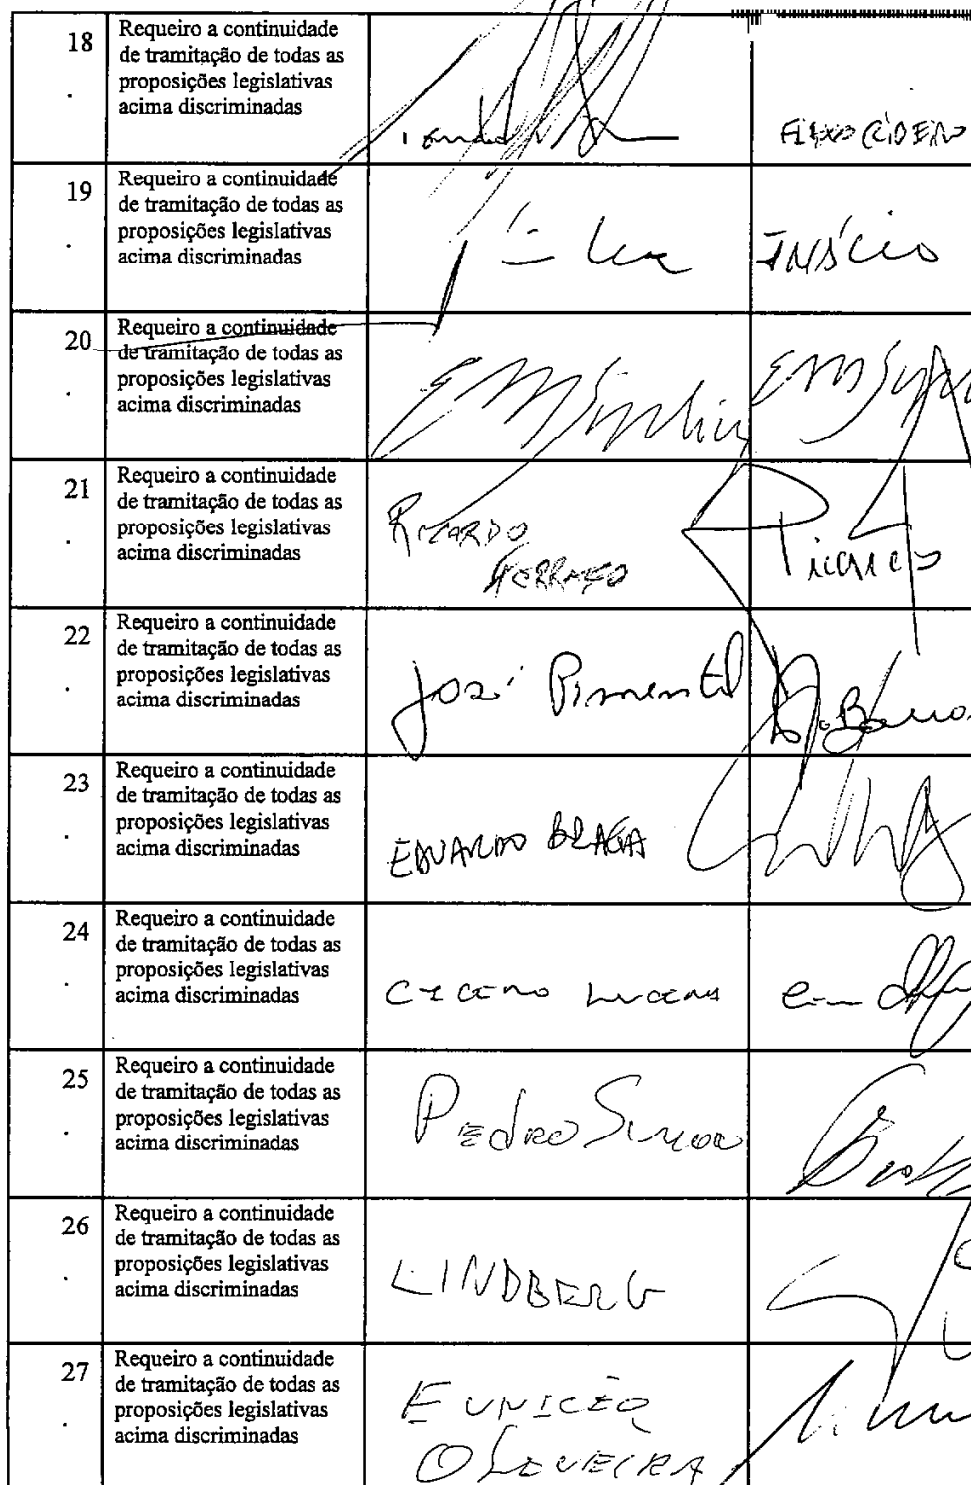 18
Requeiro a continuidade
de tramitação de todas as
proposições legislativas
acima discriminadas
.
19
Requeiro a continuidade
de tramitação de todas as
proposições legislativas
acima discriminadas
.
Inácio
20
Requeiro a continuidade
de tramitação de todas as
proposições legislativas
acima discriminadas
.
21
Requeiro a continuidade
de tramitação de todas as
proposições legislativas
acima discriminadas
.
RICARDO
FERRAÇO
22
Requeiro a continuidade
de tramitação de todas as
proposições legislativas
acima discriminadas
.
José Pimentel
23
Requeiro a continuidade
de tramitação de todas as
proposições legislativas
acima discriminadas
.
EDUARDO BRAGA
24
Requeiro a continuidade
de tramitação de todas as
proposições legislativas
acima discriminadas
.
CICERO LUCENA
25
Requeiro a continuidade
de tramitação de todas as
proposições legislativas
acima discriminadas
.
PEDRO SIMON
26
Requeiro a continuidade
de tramitação de todas as
proposições legislativas
acima discriminadas
.
LINDBERG
27
Requeiro a continuidade
de tramitação de todas as
proposições legislativas
acima discriminadas
.
EUNICIO
OLIVEIRA